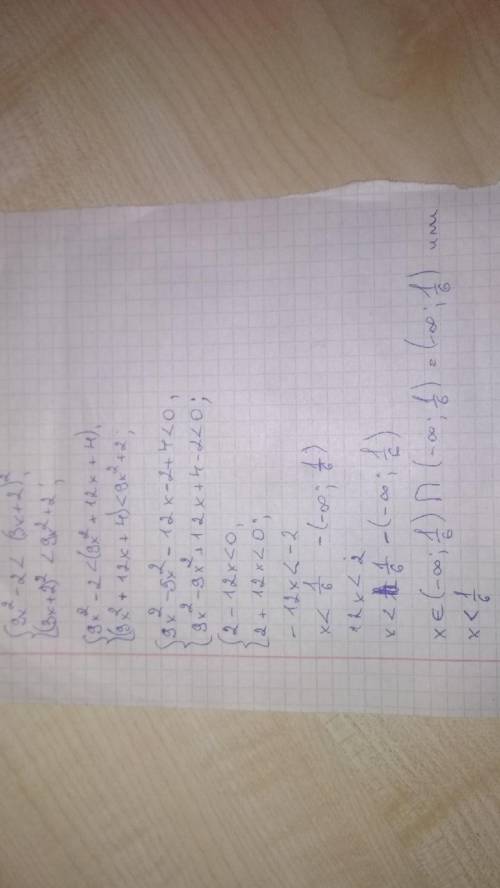 {9x² - 2 < (3x+2)²,
{(3x+2)² < 9x² + 2;
{9x² - 2 < (9x² + 12x + 4),
{(9x² + 12x + 4) < 9x² + 2;
{9x² - 9x² - 12x - 2 + 4 < 0,
{9x² - 9x² + 12x + 4 - 2 < 0;
{2 - 12x < 0,
{2 + 12x < 0;
-12x < -2
x < 1/6 - (-∞; 1/6)
12x < 2
x < 1/6 - (-∞; 1/6)
x ∈ (-∞; 1/6) ⋂ (-∞; 1/6) = (-∞; 1/6) или
x < 1/6